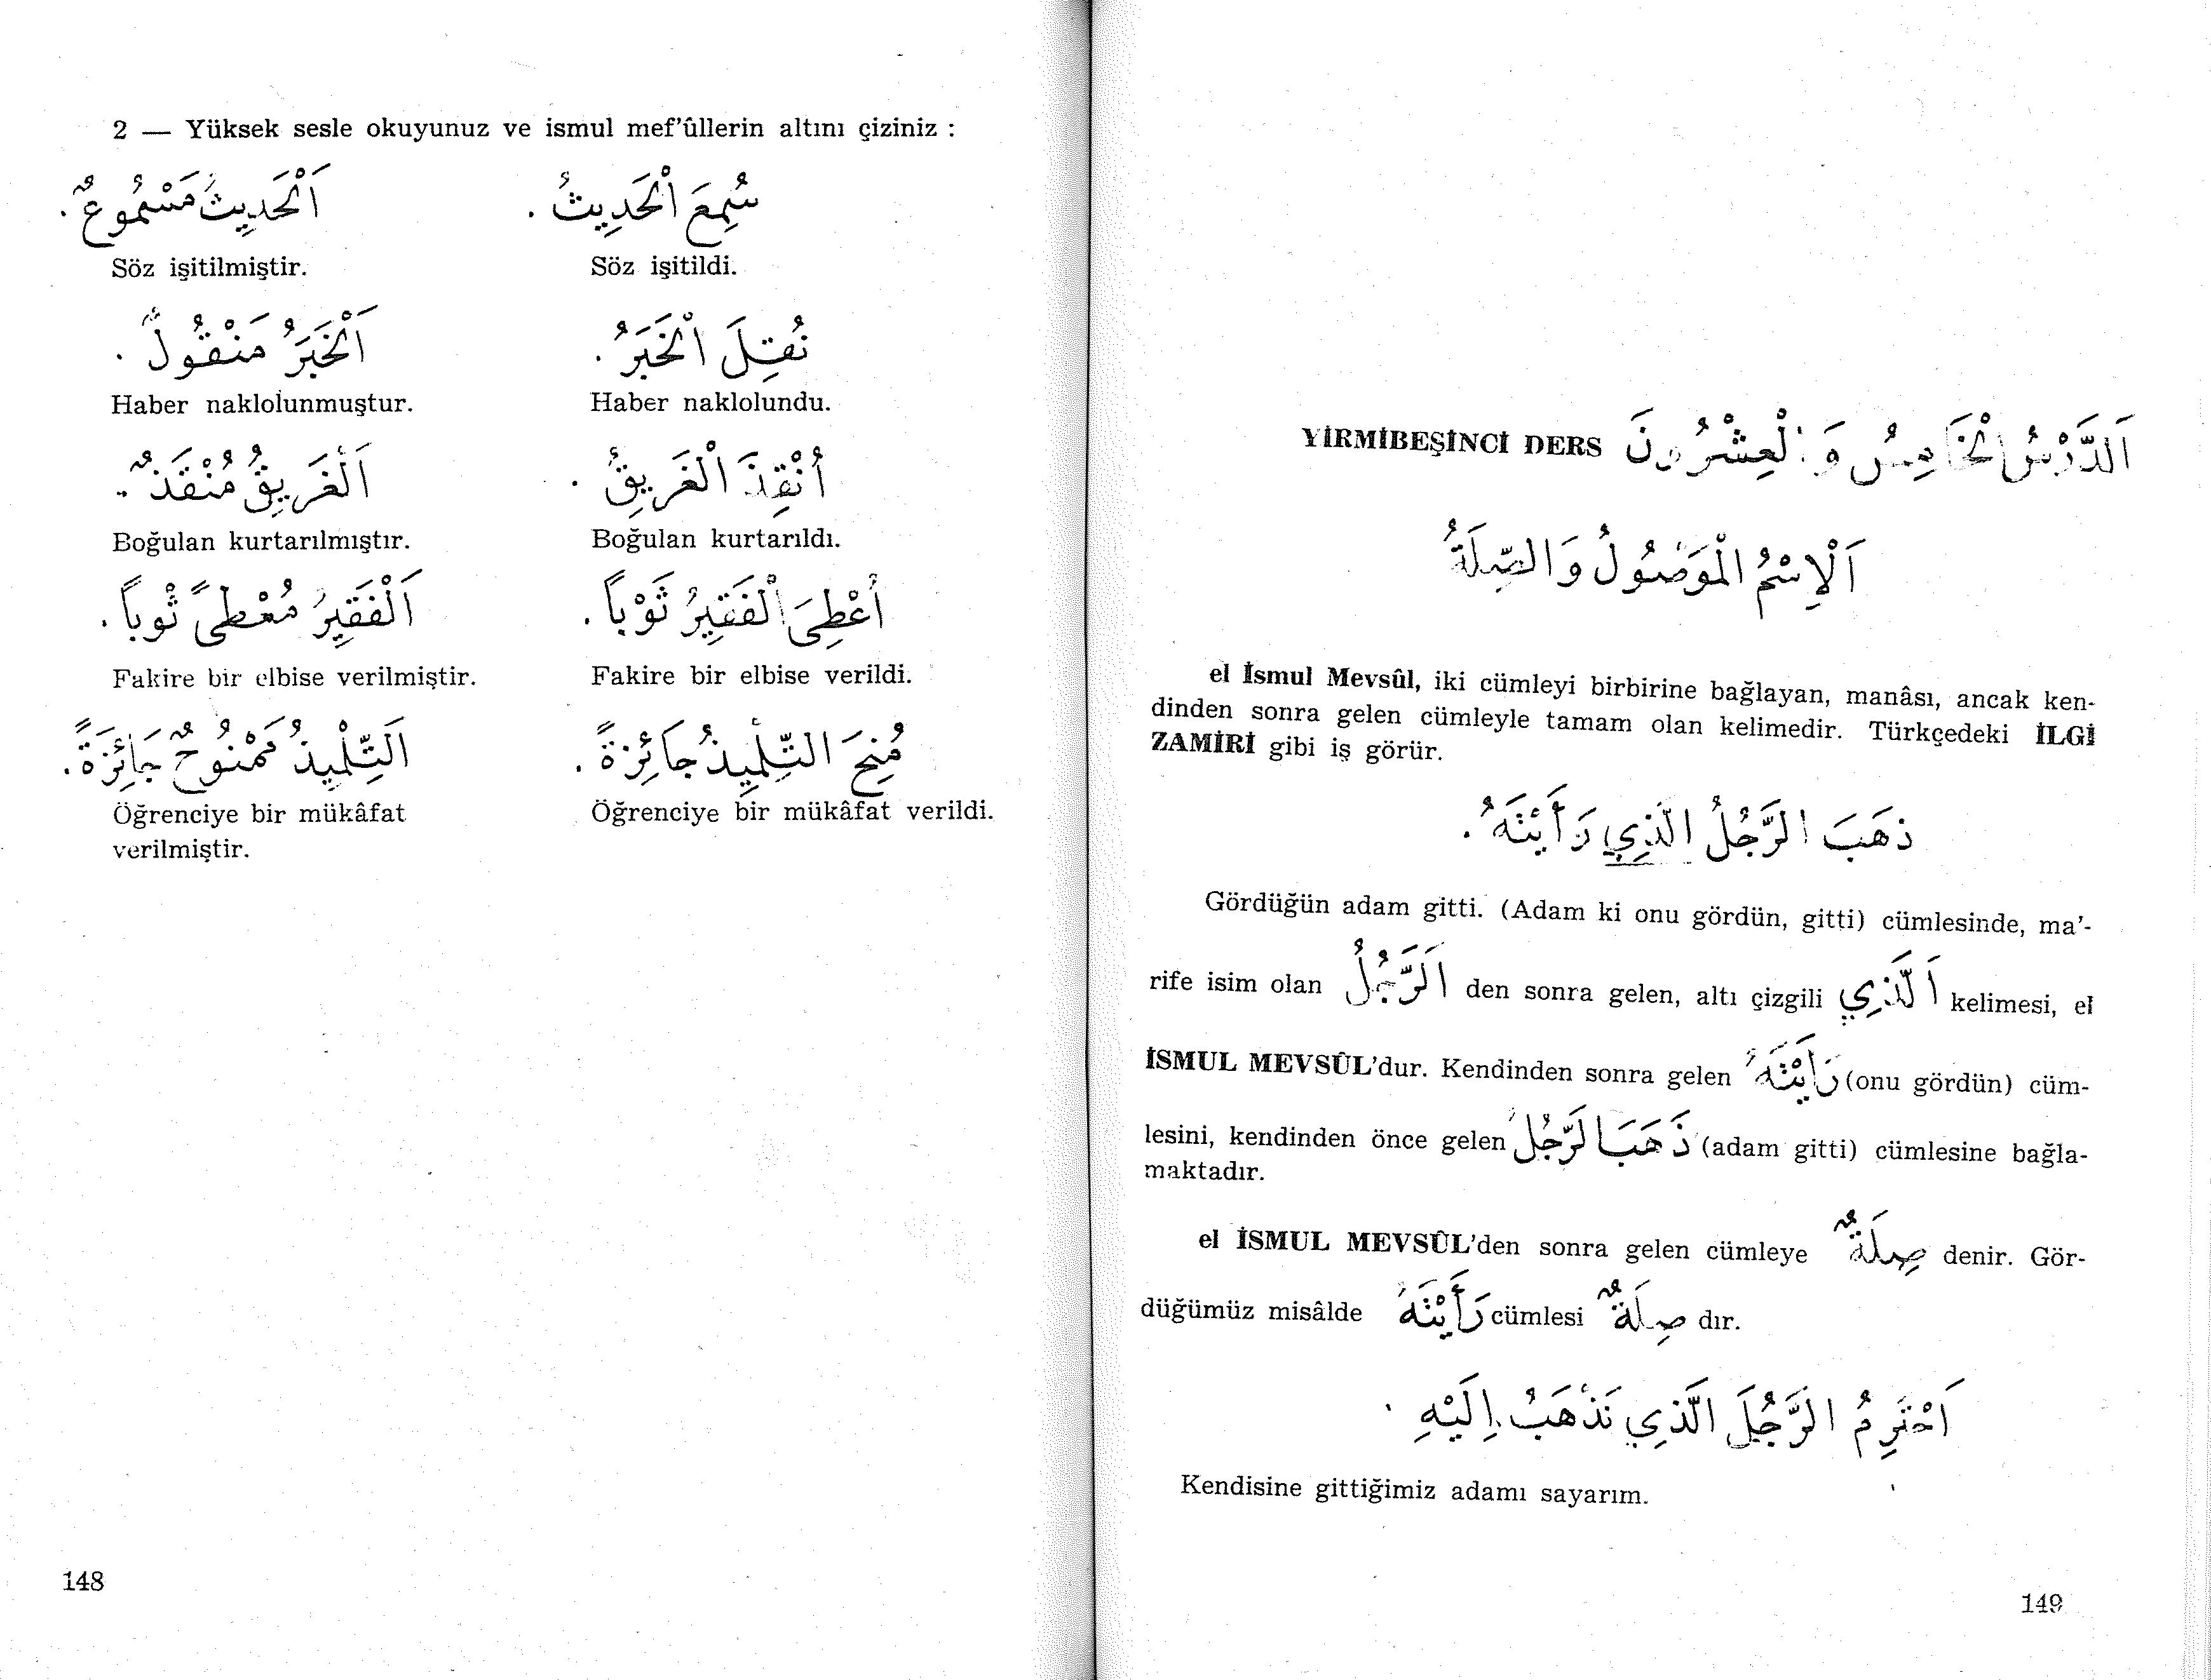 2 — Yüksek sesle okuyunuz ve ismul mef'ûllerin altını çiziniz :
سُمِعَ الْحَدِيثُ .
اَلْحَدِيثُ مَسْمُوعٌ .
Söz işitildi.
Söz işitilmiştir.
نُقِلَ الْخَبَرُ .
اَلْخَبَرُ مَنْقُولٌ .
Haber naklolundu.
Haber naklolunmuştur.
أُنْقِذَ الْغَرِيقُ .
اَلْغَرِيقُ مُنْقَذٌ .
Boğulan kurtarıldı.
Boğulan kurtarılmıştır.
أُعْطِيَ الْفَقِيرُ ثَوْباً .
اَلْفَقِيرُ مُعْطىً ثَوْباً .
Fakire bir elbise verildi.
Fakire bir elbise verilmiştir.
مُنِحَ التِّلْمِيذُ جَائِزَةً .
اَلتِّلْمِيذُ مَمْنُوحٌ جَائِزَةً .
Öğrenciye bir mükâfat verildi.
Öğrenciye bir mükâfat
verilmiştir.
148
YİRMİBEŞİNCİ DERS اَلدَّرْسُ الْخَامِسُ وَالْعِشْرُونَ
اَلْاِسْمُ الْمَوْصُولُ وَالصِّلَةُ
el İsmul Mevsûl, iki cümleyi birbirine bağlayan, manâsı, ancak ken-
dinden sonra gelen cümleyle tamam olan kelimedir. Türkçedeki İLGİ
ZAMİRİ gibi iş görür.
ذَهَبَ الرَّجُلُ الَّذِي رَأَيْتَهُ .
Gördüğün adam gitti. (Adam ki onu gördün, gitti) cümlesinde, ma'-
rife isim olan اَلرَّجُلُ den sonra gelen, altı çizgili اَلَّذِي kelimesi, el
İSMUL MEVSÛL'dur. Kendinden sonra gelen رَأَيْتَهُ (onu gördün) cüm-
lesini, kendinden önce gelen ذَهَبَ الرَّجُلُ (adam gitti) cümlesine bağla-
maktadır.
el İSMUL MEVSÛL'den sonra gelen cümleye صِلَةٌ denir. Gör-
düğümüz misâlde رَأَيْتَهُ cümlesi صِلَةٌ dır.
اَحْتَرِمُ الرَّجُلَ الَّذِي نَذْهَبُ اِلَيْهِ .
Kendisine gittiğimiz adamı sayarım.
149